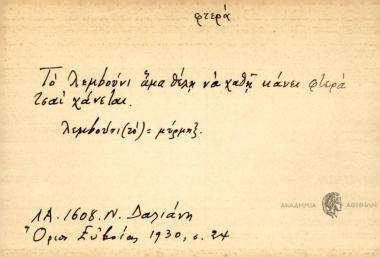 φτερά
Τὸ λεμβούνι ἅμα θέλῃ νὰ χαθῇ κάνει φτερά
τσαὶ χάνεται.
λεμβούνι (τὸ) = μύρμηξ.
ΑΚΑΔΗΜΙΑ ΑΘΗΝΩΝ
ΛΑ. 1608. Ν. Δαλιάνη
Ὄριοι Εὐβοίας 1930, σ. 24